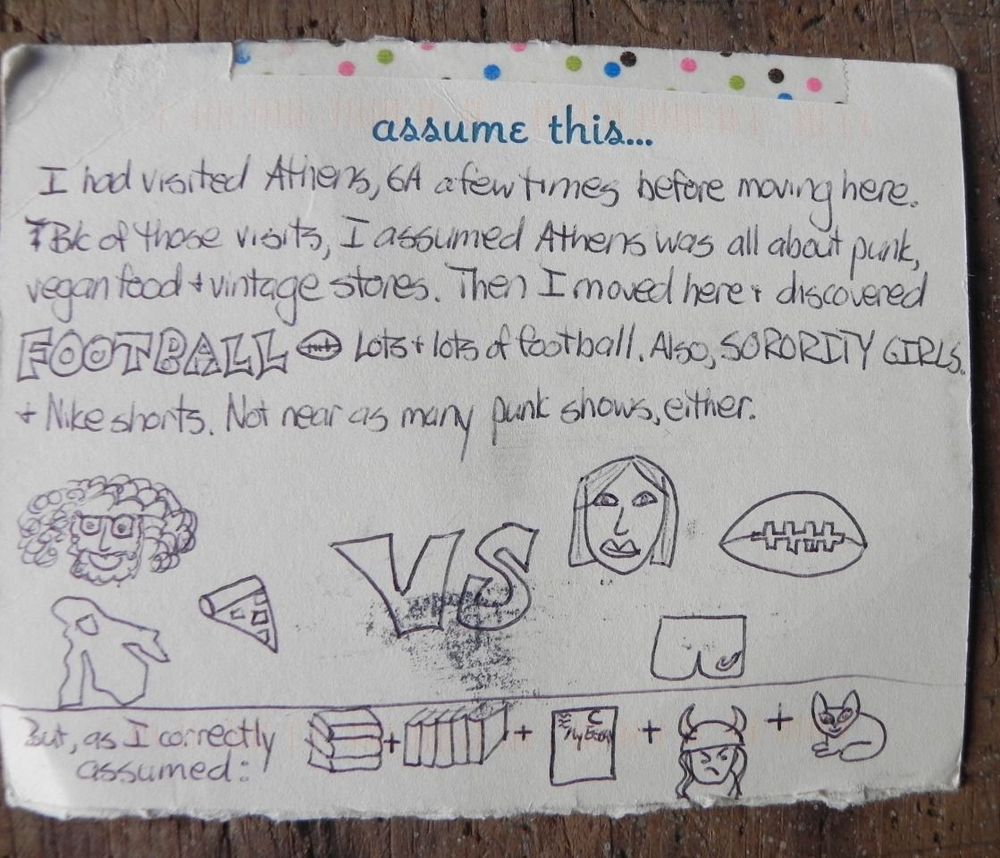 assume this...
I had visited Athens, GA a few times before moving here.
B/c of those visits, I assumed Athens was all about punk,
vegan food + vintage stores. Then I moved here + discovered
FOOTBALL Lots + lots of football. Also, SORORITY GIRLS.
+ Nike shorts. Not near as many punk shows, either.
VS
But, as I correctly
assumed:
+ + + +
C
My Essay